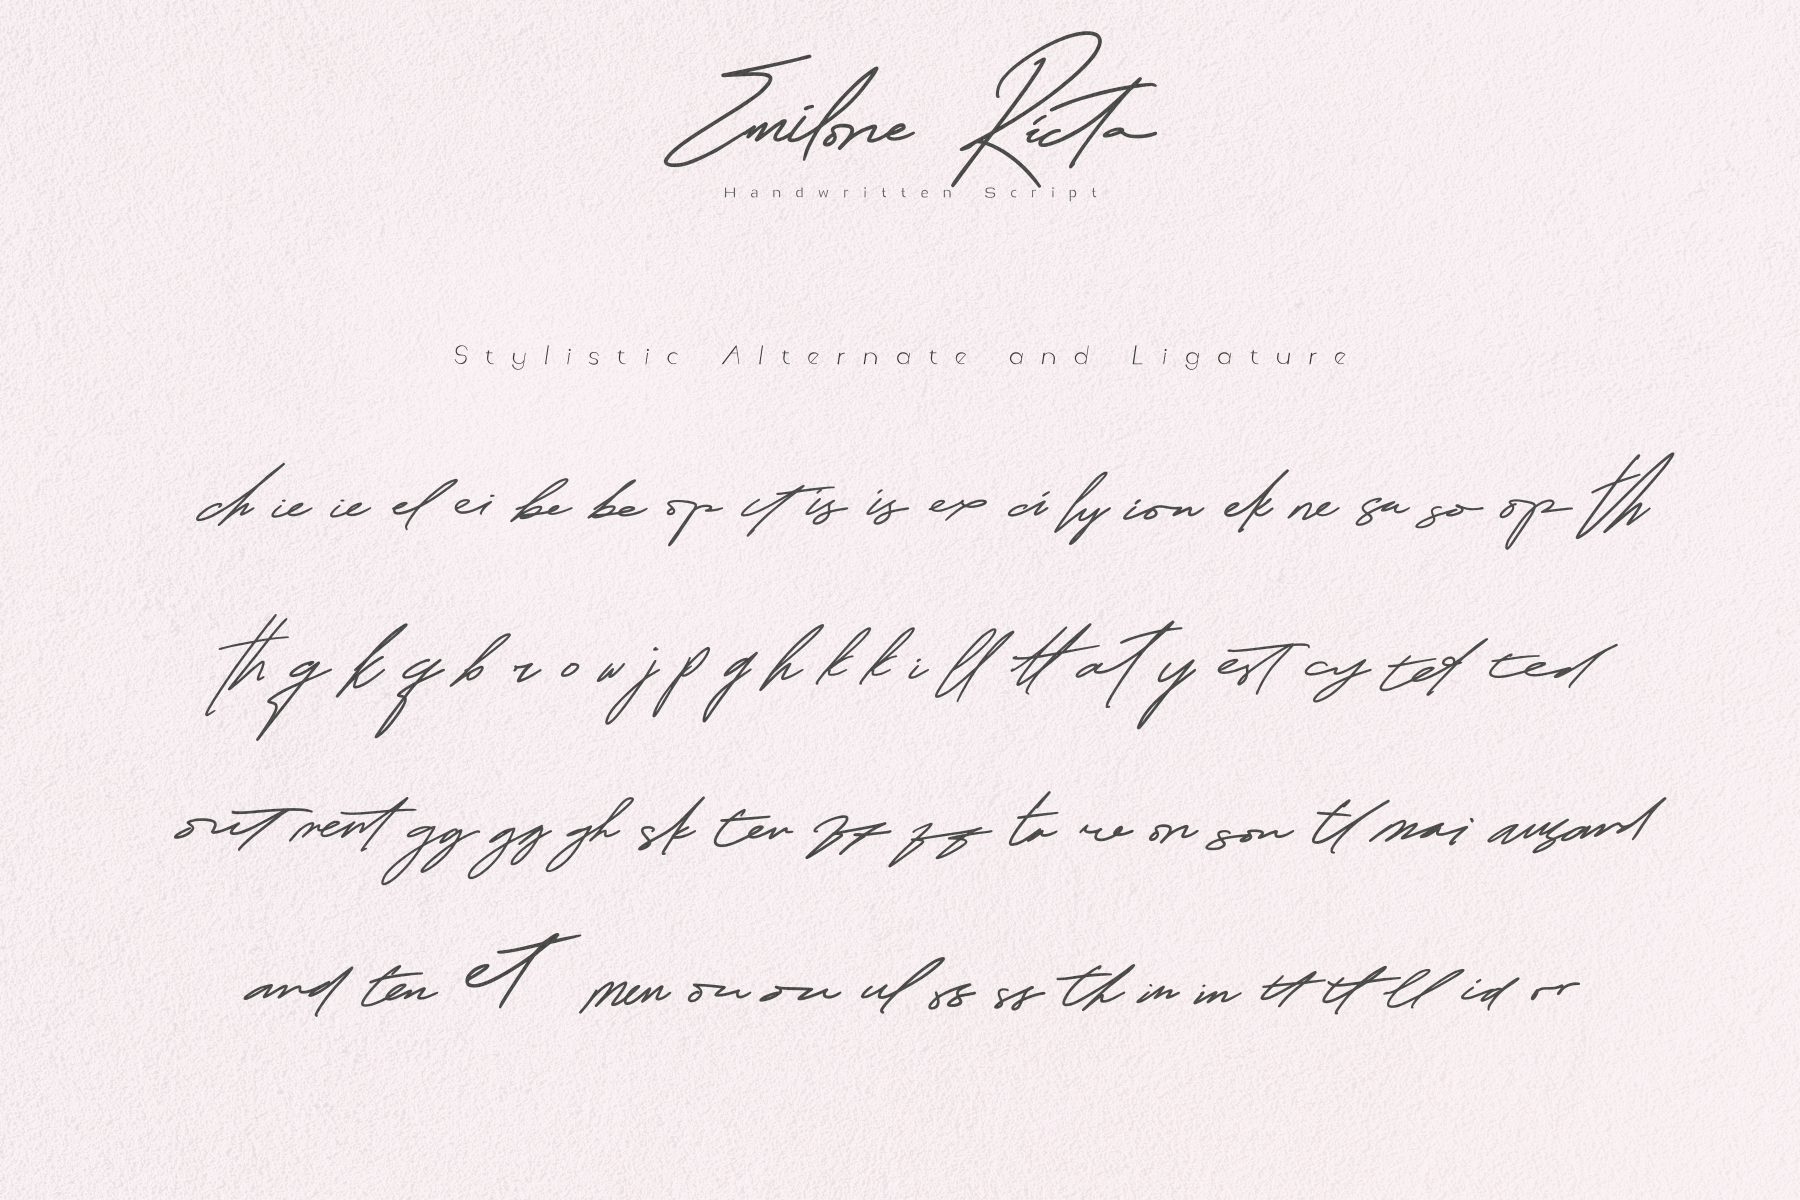 Emilone Ricta
Handwritten Script
Stylistic Alternate and Ligature
ch ie ie el ei be be op ct is is ex ci ly ion ek ne sa so op th
th g k g b r o w j p g h k k i ll tt at y est cy ted ted
out ment gg gg gh sk ten zz zz ta re on son tl mai ausand
and ten et men ou ou ul ss ss th in in tt tt ll id or